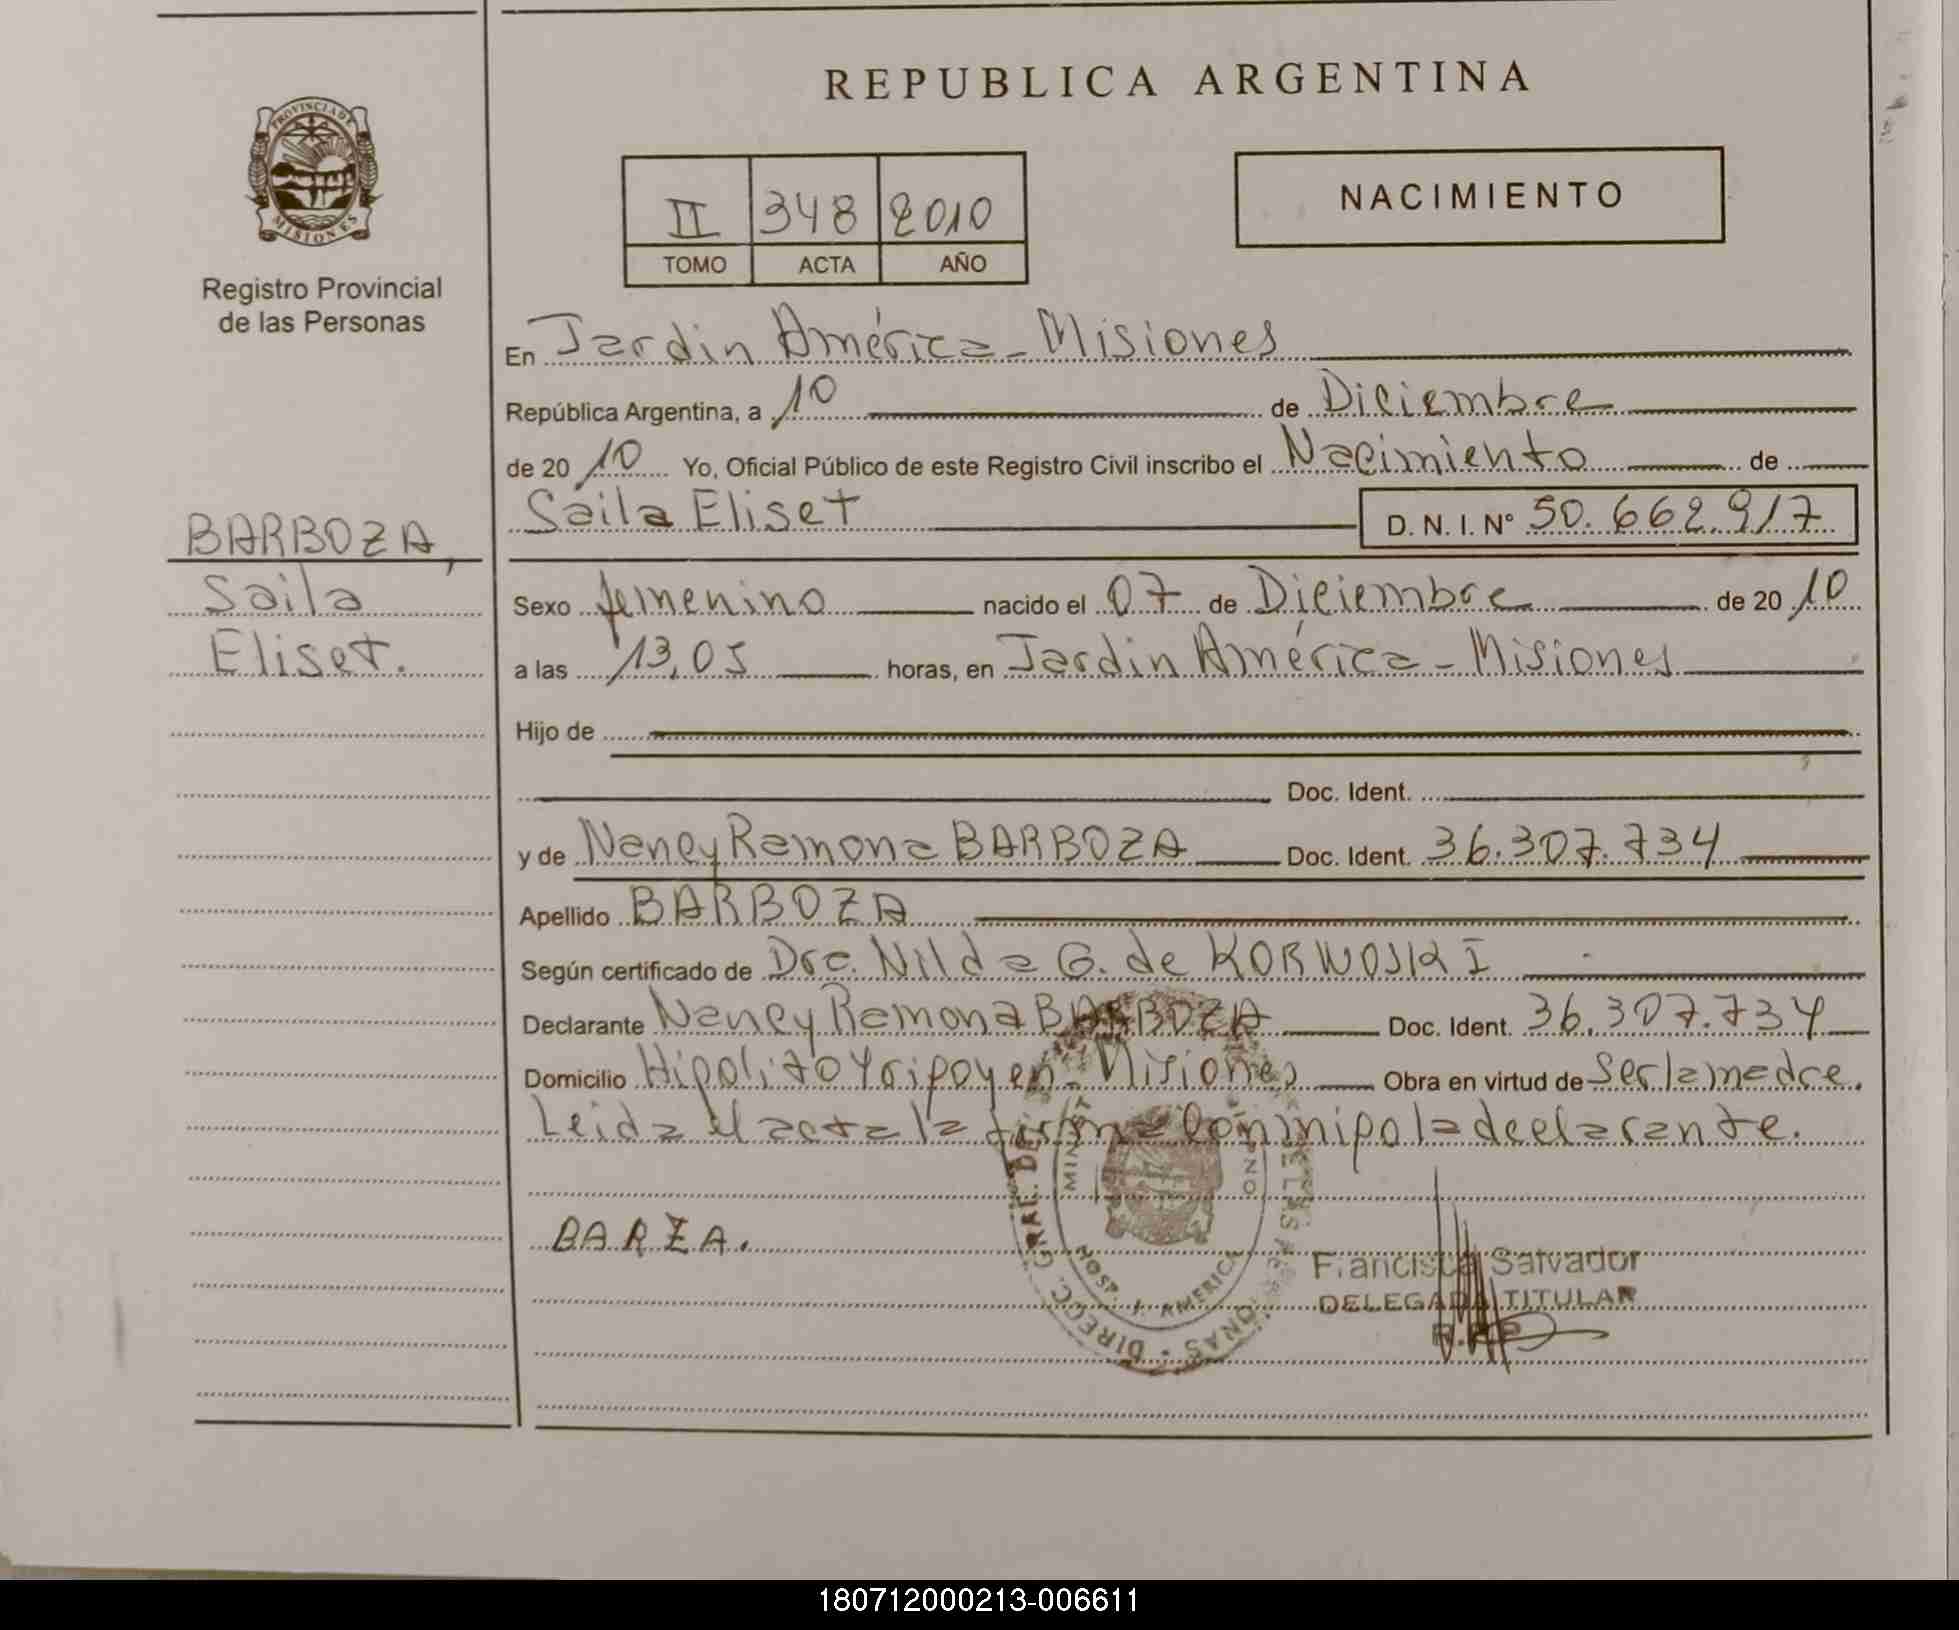 REPUBLICA ARGENTINA
PROVINCIA DE
MISIONES
Registro Provincial
de las Personas
II 348 2010
TOMO ACTA AÑO
NACIMIENTO
En Jardin América - Misiones
República Argentina, a 10 de Diciembre
de 20 10 Yo, Oficial Público de este Registro Civil inscribo el Nacimiento de
Saila Eliset D. N. I. N° 50.662.917
BARBOZA,
Saila
Eliset.
Sexo femenino nacido el 07 de Diciembre de 20 10
a las 13,05 horas, en Jardin América - Misiones
Hijo de
Doc. Ident.
y de Nancy Ramona BARBOZA Doc. Ident. 36.307.734
Apellido BARBOZA
Según certificado de Dra. Nilda G. de KORWOSKI
Declarante Nancy Ramona BARBOZA Doc. Ident. 36.307.734
Domicilio Hipolito Yripoyen - Misiones Obra en virtud de Ser la madre.
Leida el acta la firma con mi po la declarante.
BARZA.
DIRECC. GRAL. DE LAS PERSONAS
HOSP. J. AMERICA
Francisca Salvador
DELEGADA TITULAR
180712000213-006611